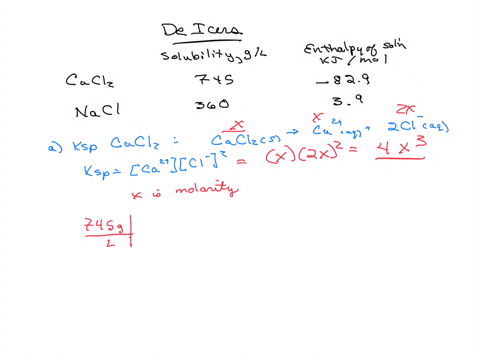 De Icers
Solubility, g/L Enthalpy of soln
KJ/mol
CaCl₂ 745 -82.9
NaCl 360 3.9
x x 2x
a) Ksp CaCl₂ : CaCl₂(s) → Ca²⁺(aq) + 2Cl⁻(aq)
Ksp = [Ca²⁺][Cl⁻]² = (x)(2x)² = 4x³
x is molarity
745g
L